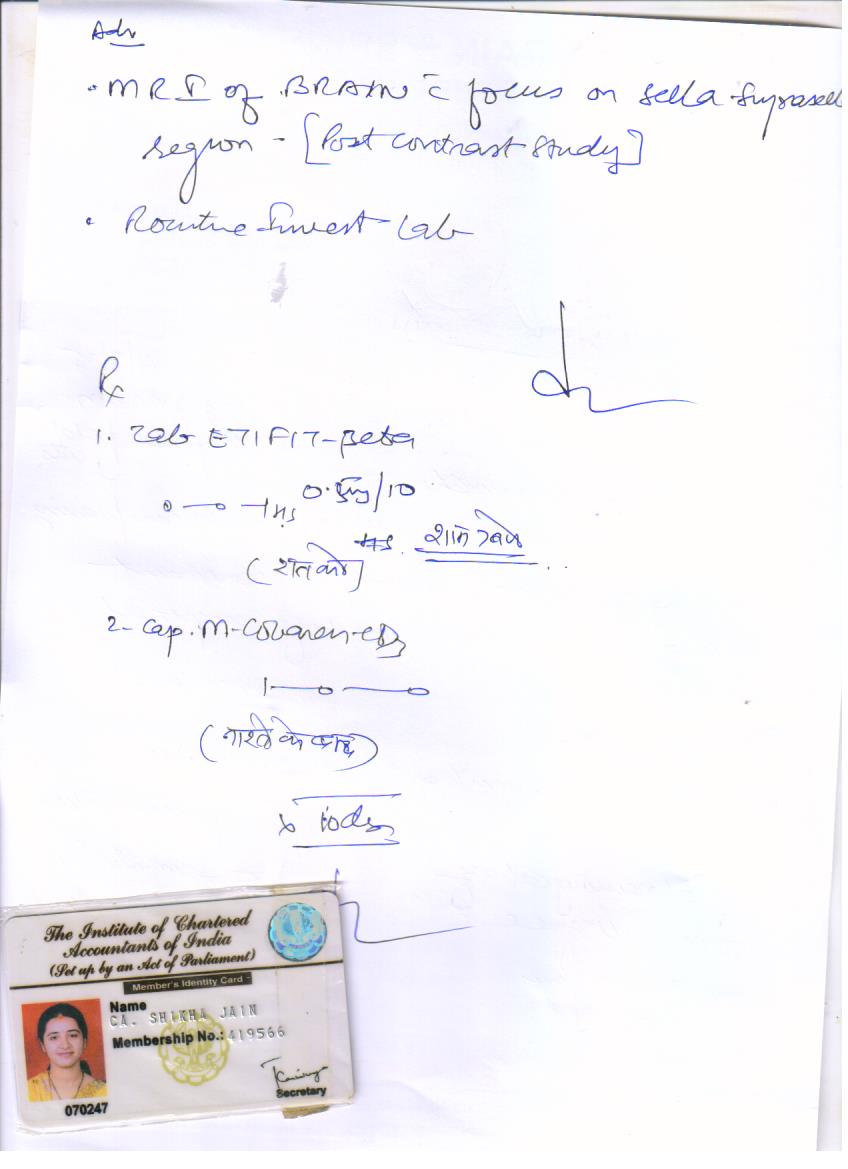 Adv
• MRI of BRAIN c̄ focus on sella-suprasell
region - [Post contrast study]
• Routine Invest- Lab
Rx
1. Tab ETIFIT-Beta
0.5mg/10
o—o—1 HS
HS. शाम 7 बजे
(रात को)
2- Cap. M-Cobaren-
1—o—o
(नाश्ते के बाद)
x 10 days
The Institute of Chartered
Accountants of India
(Set up by an Act of Parliament)
Member's Identity Card
Name
CA. SHIKHA JAIN
Membership No.: 419566
Secretary
070247